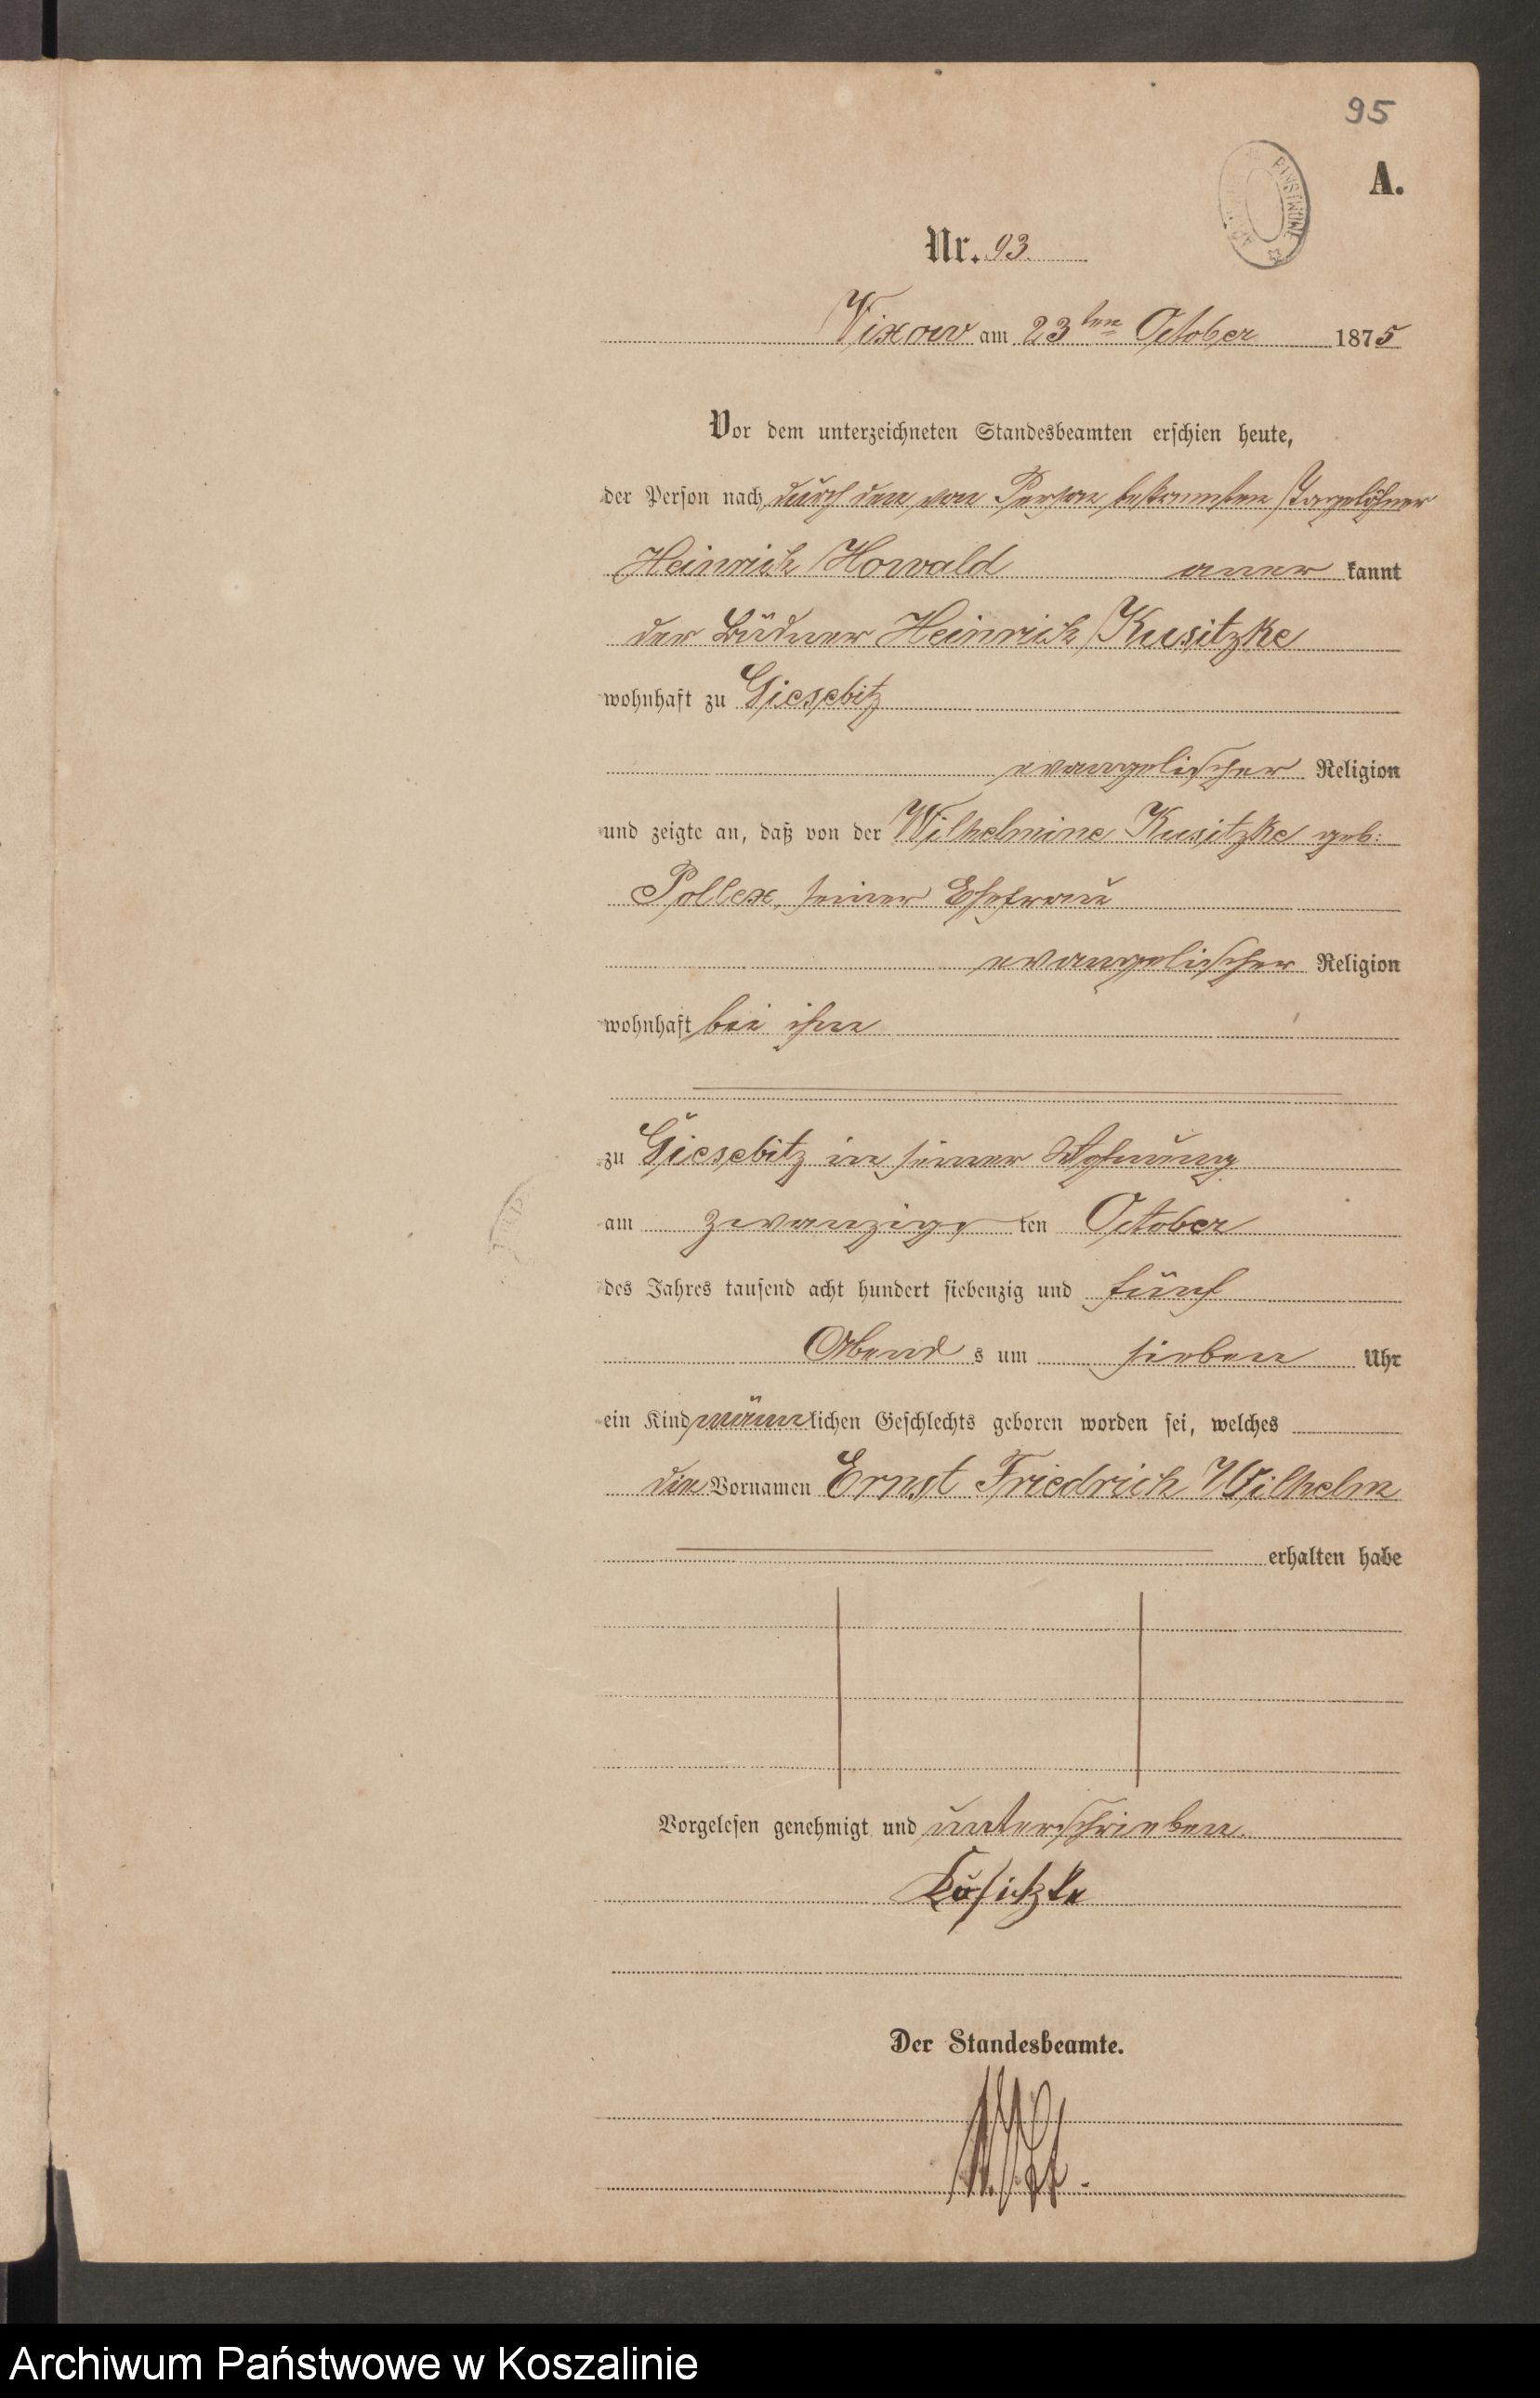 95
A.
PAŃSTWOWE
Nr. 93.
Vixow am 23ten October 1875
Vor dem unterzeichneten Standesbeamten erschien heute,
der Person nach durch den von Person bekannten Tagelöhner
Heinrich Howald aner kannt
der Büdner Heinrich Kusitzke
wohnhaft zu Giesebitz
evangelischer Religion
und zeigte an, daß von der Wilhelmine Kusitzke geb:
Pollex, seiner Ehefrau
evangelischer Religion
wohnhaft bei ihm
zu Giesebitz in seiner Wohnung
am zwanzigs ten October
des Jahres tausend acht hundert siebenzig und fünf
Abend s um sieben Uhr
ein Kind männlichen Geschlechts geboren worden sei, welches
die Vornamen Ernst Friedrich Wilhelm
erhalten habe
Vorgelesen genehmigt und unterschrieben.
Kusitzke
Der Standesbeamte.
Archiwum Państwowe w Koszalinie